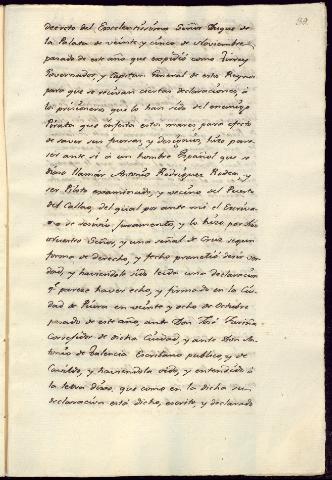 39
decreto del Excelentissimo Señor Duque de
la Palata de veinte, y cinco de Noviembre
pasado de este año que expidió como Virrey
Governador, y Capitan General de este Reyno
para que se reciban ciertas declaraciones, à
los prisioneros que lo han sido del enemigo
Pirata que infesta estos mares para efecto
de saver sus fuerzas, y designios, hizo pare-
cer ante si à un hombre Español que se
dixo llamar Antonio Rodriguez y
ser Piloto examinado, y vecino del Puerto
del Callao, del qual por ante mi el Escriva-
no se recivió juramento, y lo hizo por Dios
nuestro Señor, y una señal de Cruz segun
forma de derecho, y fecho prometió decir ver-
dad, y haviendole sido leida una declaracion
qe. parece haver echo, y firmado en la Ciu-
dad de Piura en veinte y ocho de Octubre
pasado de este año, ante Don José
Corregidor de dicha Ciudad, y ante Don An-
tonio de Valencia Escribano publico, y de
Cavildo, y haviendola oido, y entendido à
la letra dixo, que como en la dicha su
declaracion está dicho, escrito, y declarado